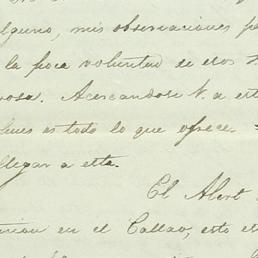 alguno, mis observaciones p
la poca voluntad de esos
rosa. Acercandose V. a est
es todo lo que ofrece.
llegar a esta.
El Albert
union en el Callao, esto e